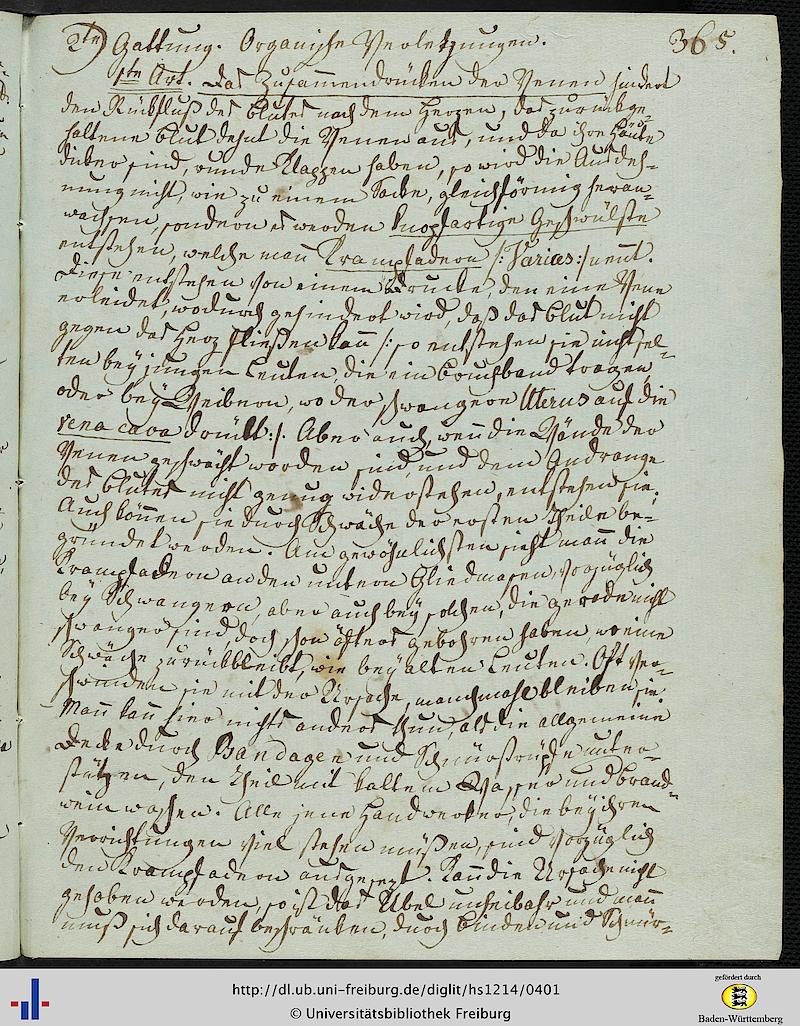 2te) Gattung. Organische Verletzungen. 365.
1te Art. Das Zusammendrücken der Venen hindert
den Rückfluß des Blutes nach dem Herzen, das zurückge-
haltene Blut dehnt die Venen aus, und da ihre Häute
dicker sind, runde Klappen haben, so wird die Ausdeh-
nung nicht, wie zu einem Sacke, gleichförmig heran-
wachsen, sondern es werden knopfartige Geschwülste
entstehen, welche man Krampfadern /: Varices :/ nent.
Diese entstehen von einem Drucke, den eine Vene
erleidet, wodurch gehindert wird, daß das Blut nicht
gegen das Herz fließen kann /: so entstehen sie nicht sel-
ten bey jungen Leuten, die ein Bruchband tragen,
oder bey Weibern, wo der schwangere Uterus auf die
vena cava drükt :/. Aber auch, wenn die Wände der
Venen geschwächt worden sind, und dem Andrange
des Blutes nicht genug widerstehen, entstehen sie.
Auch können sie durch Schwäche der ersten Theile be-
gründet werden. Am gewöhnlichsten sieht man die
Krampfadern an den untern Gliedmasen, vorzüglich
bey Schwangern, aber auch bey solchen, die gerade nicht
schwanger sind, doch schon öfters gebohren haben, wo eine
Schwäche zurükbleibt, wie bey alten Leuten. Oft ver-
schwinden sie mit der Ursache, manchmahl bleiben sie.
Man kan hier nichts anders thun, als die allgemeine
Decke durch Bandagen und Schnürstrüpfe unter-
stützen, den Theil mit kaltem Wasser und Brand-
wein waschen. Alle jene Handwerker, die bey ihren
Verrichtungen viel stehen müßen, sind vorzüglich
den Krampfadern ausgesezt. Kann die Ursache nicht
gehoben werden, so ist das Übel unheilbahr und man
muß sich darauf beschränken, durch Binden und Schnür-
http://dl.ub.uni-freiburg.de/diglit/hs1214/0401
© Universitätsbibliothek Freiburg
gefördert durch
Baden-Württemberg